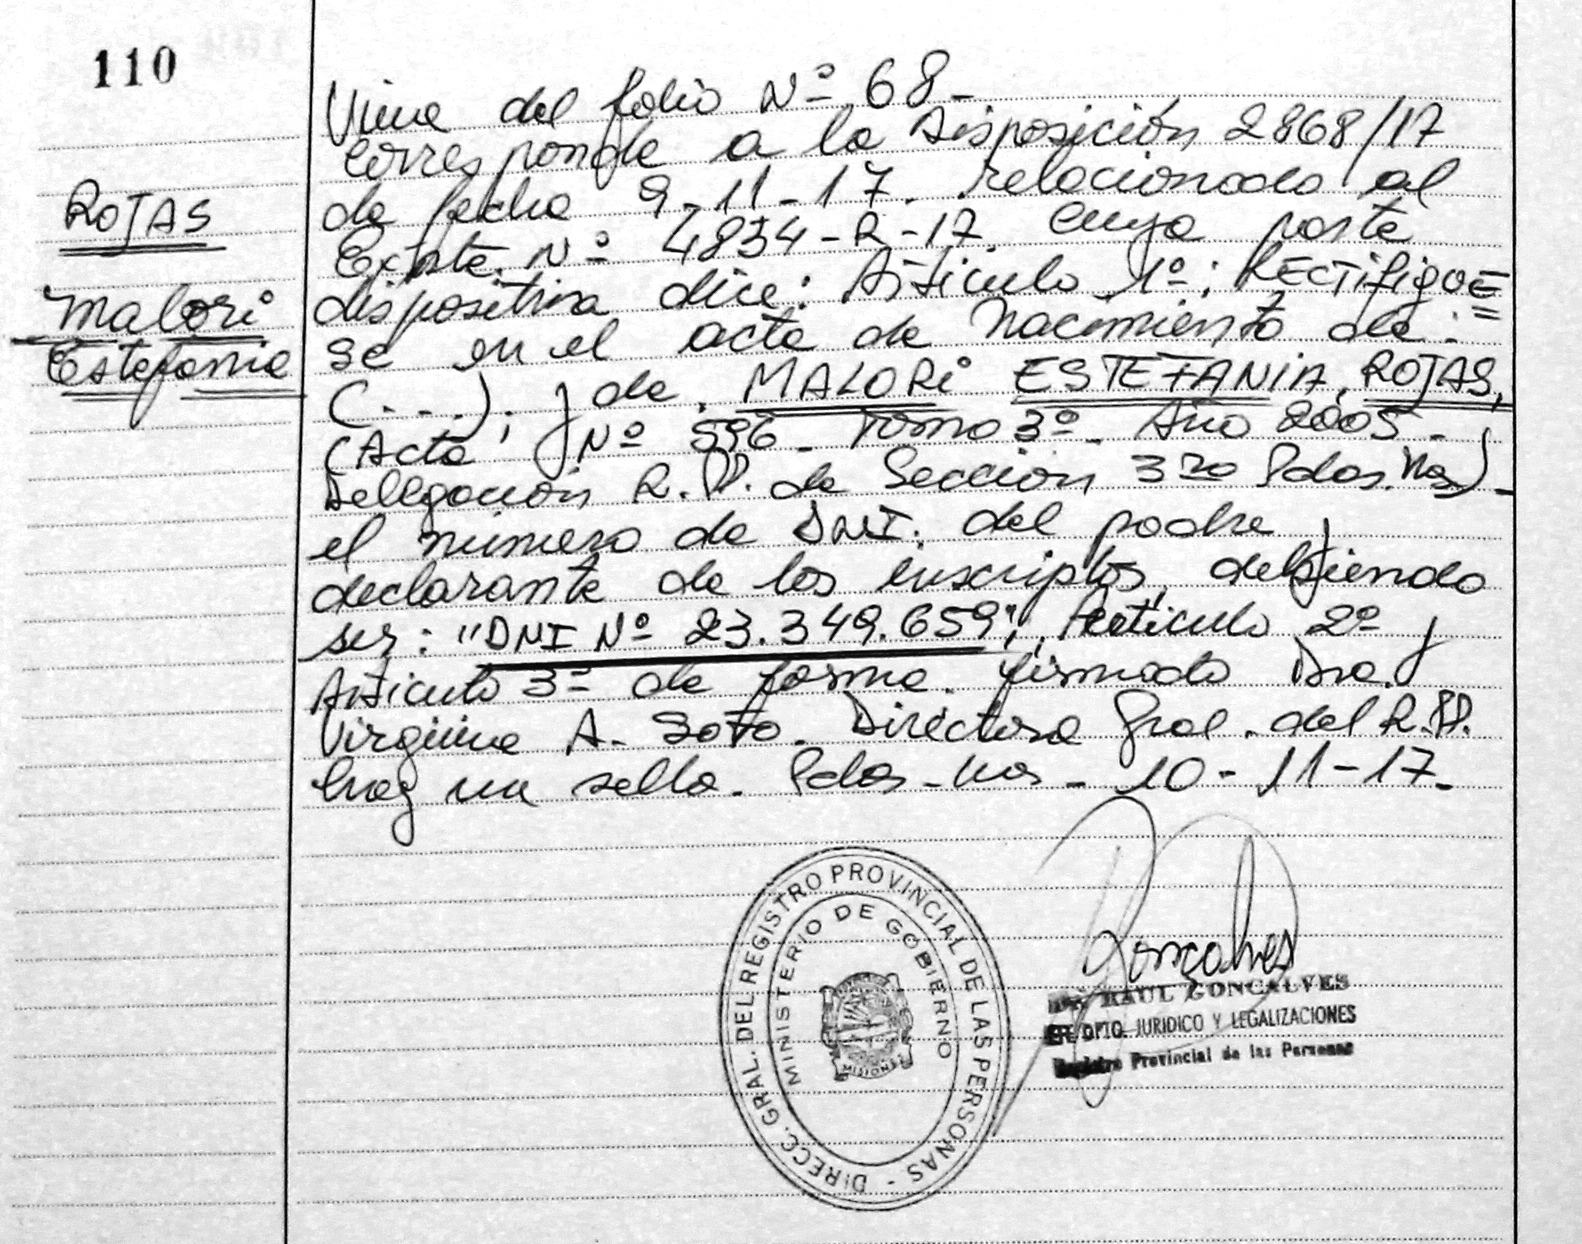 110
ROJAS
Malori
Estefania
Viene del folio Nº 68-
corresponde a la Disposición 2868/17
de fecha 9-11-17. relacionado al
Expte. Nº 4834-R-17. cuya parte
dispositiva dice: Artículo 1º: RECTIFIQUE
se en el acta de Nacimiento de:
(...); y de. MALORI ESTEFANIA, ROJAS,
(Acta Nº 596- Tomo 3º- Año 2005-
Delegación R.PP. de Sección 3ra Pdas. Mnes)-
el número de DNI. del padre y
declarante de los inscriptos, debiendo
ser: "DNI Nº 23.349.659"; Artículo 2º y
Artículo 3º de forma. firmado Dra.
Virginia A. Soto. Directora Gral. del R.PP.
hay un sello. Pdas-Mnes- 10-11-17-
DIRECC. GRAL. DEL REGISTRO PROVINCIAL DE LAS PERSONAS -
MINISTERIO DE GOBIERNO
MISIONES
Goncalves
RAUL GONCALVES
DPTO. JURIDICO Y LEGALIZACIONES
Registro Provincial de las Personas